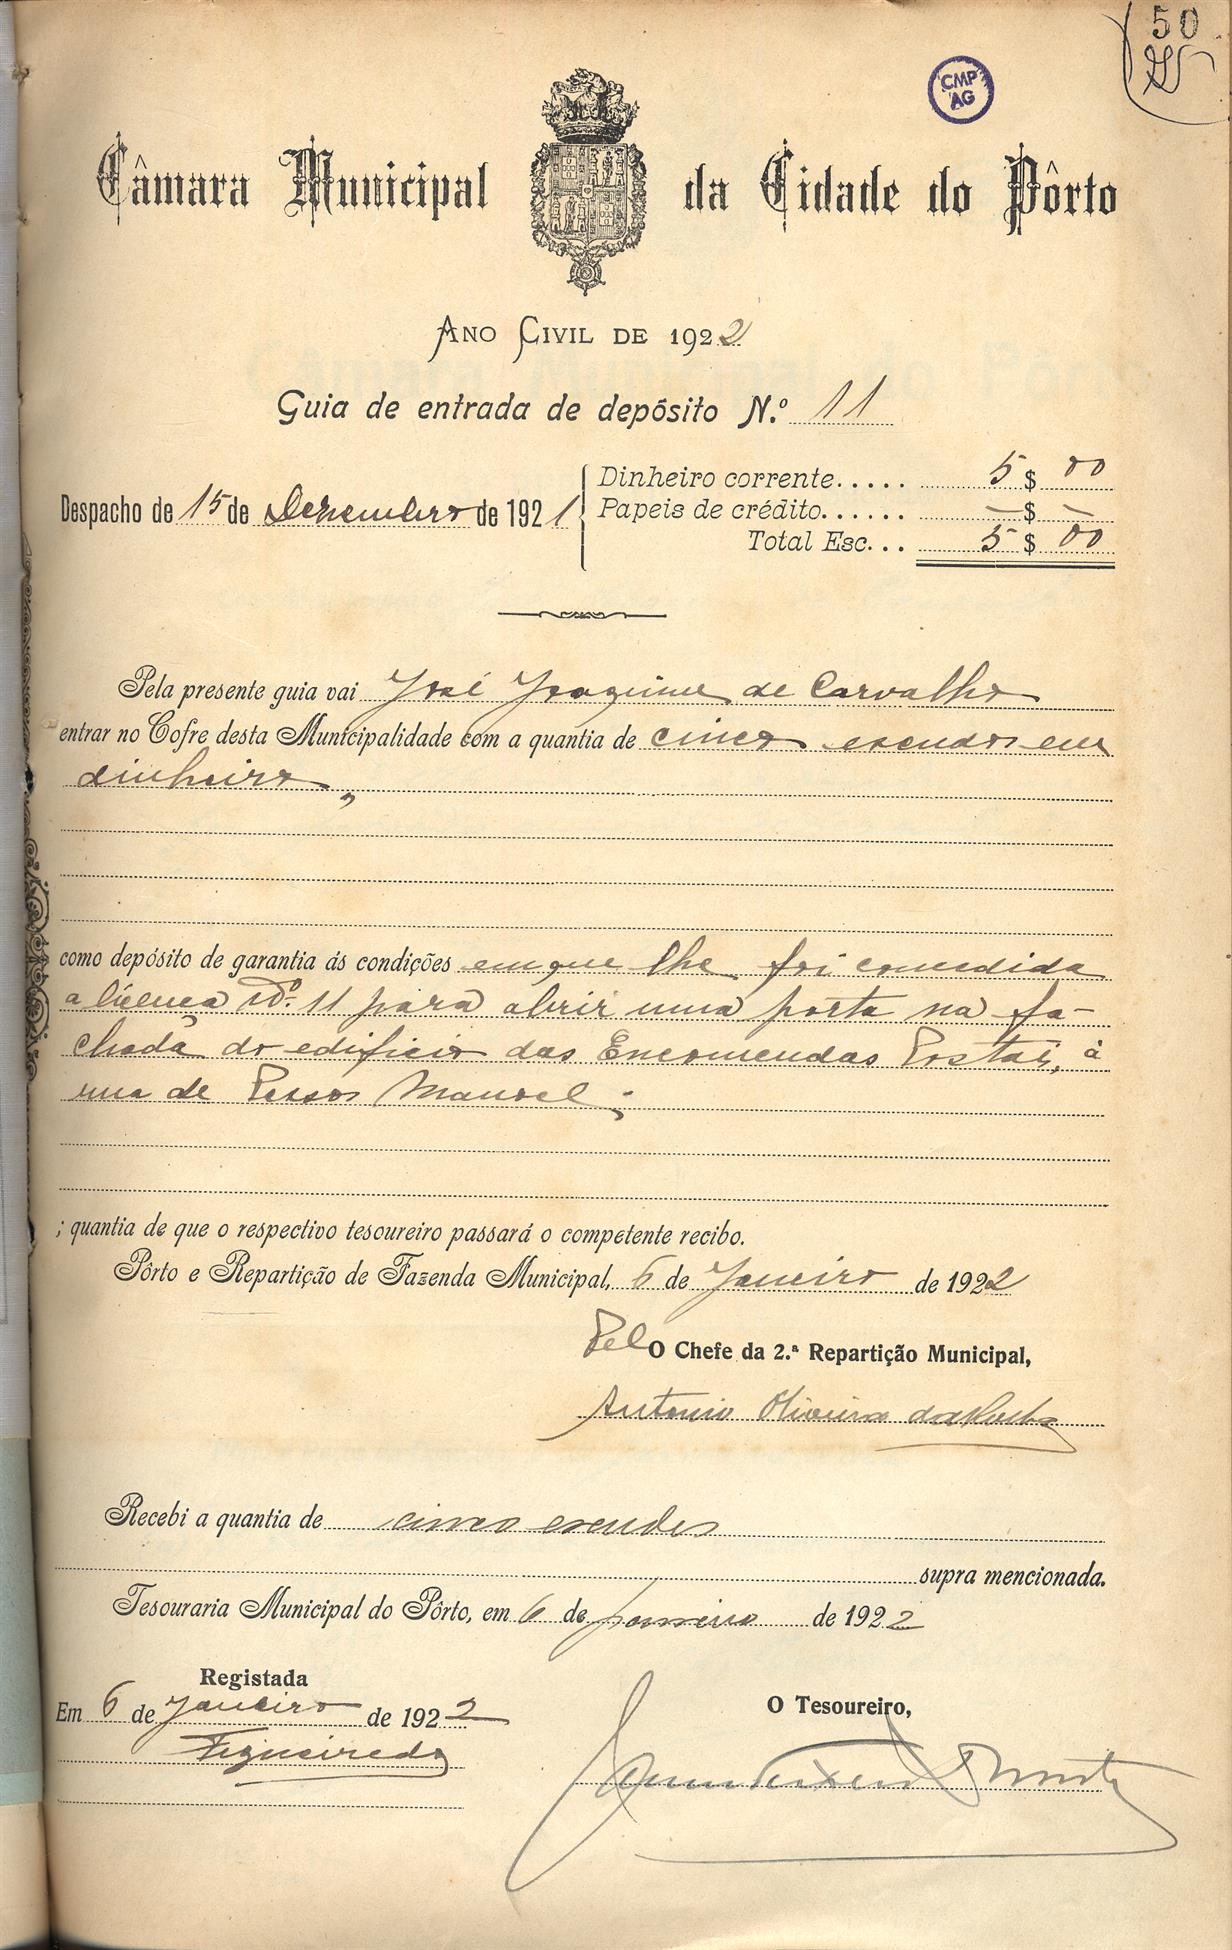 50
CMP
AG
Câmara Municipal da Cidade do Pôrto
Ano Civil de 1922
Guia de entrada de depósito N.º 11
Despacho de 15 de Dezembro de 1921
Dinheiro corrente..... 5 $ 00
Papeis de crédito...... — $ —
Total Esc... 5 $ 00
Pela presente guia vai José Joaquim de Carvalho
entrar no Cofre desta Municipalidade com a quantia de cinco escudos em
dinheiro,
como depósito de garantia ás condições em que lhe foi concedida
a licença Nº. 11 para abrir uma porta na fa-
chada do edificio das Encomendas Postais, á
rua de Passos Manoel;
; quantia de que o respectivo tesoureiro passará o competente recibo.
Pôrto e Repartição de Fazenda Municipal, 6 de Janeiro de 1922
Pel O Chefe da 2.ª Repartição Municipal,
Antonio Oliveira da
Recebi a quantia de cinco escudos
supra mencionada.
Tesouraria Municipal do Pôrto, em 6 de janeiro de 1922
Registada
Em 6 de Janeiro de 1922
Figueiredo
O Tesoureiro,